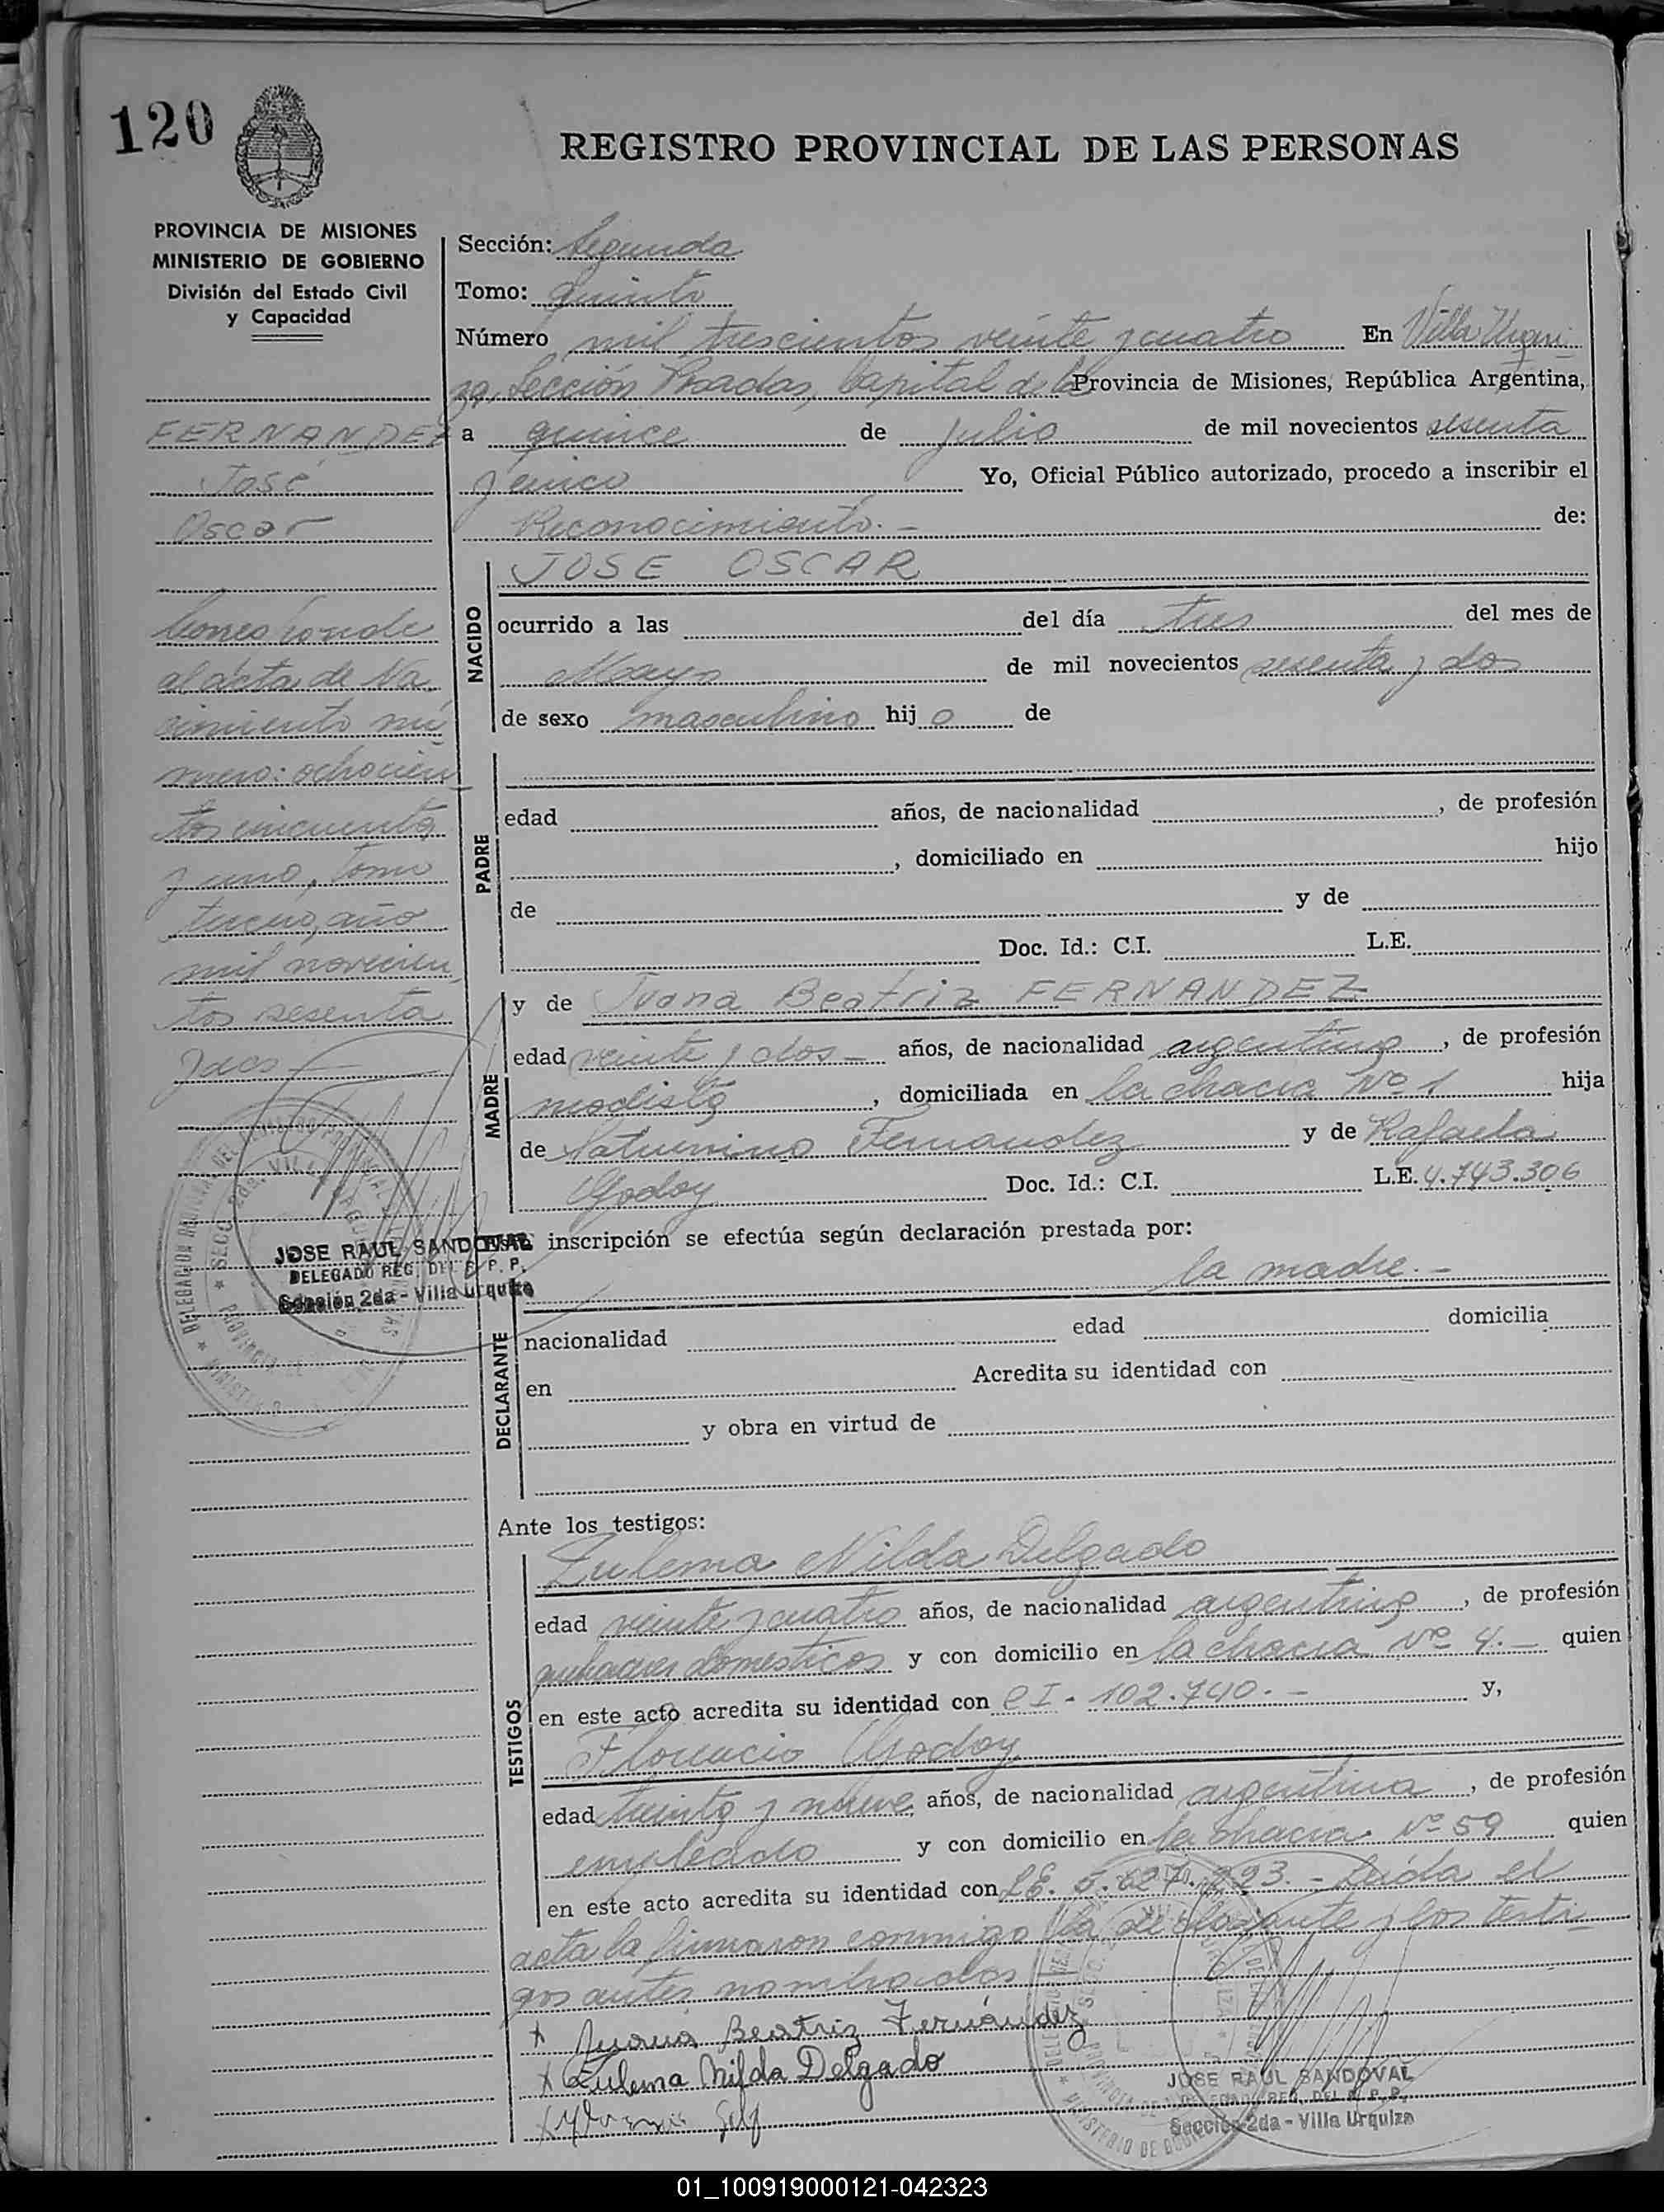 120
REGISTRO PROVINCIAL DE LAS PERSONAS
PROVINCIA DE MISIONES
MINISTERIO DE GOBIERNO
División del Estado Civil
y Capacidad
FERNANDEZ
José
Oscar
Corresponde
al acta de Na
cimiento nú
mero: ochocien
tos cincuenta
y uno, tomo
tercero, año
mil novecien
tos sesenta
y dos
JOSE RAUL SANDOVAL
DELEGADO REG. DEL R. P. P.
Sección 2da - Villa Urquiza
Sección: Segunda
Tomo: Quinto
Número mil trescientos veinte y cuatro En Villa Urqui
za, Sección Posadas, Capital de la Provincia de Misiones, República Argentina,
a quince de Julio de mil novecientos sesenta
y cinco Yo, Oficial Público autorizado, procedo a inscribir el
Reconocimiento.- de:
NACIDO
JOSE OSCAR
ocurrido a las del día tres del mes de
Mayo de mil novecientos sesenta y dos
de sexo masculino hijo de
PADRE
edad años, de nacionalidad , de profesión
, domiciliado en hijo
de y de
Doc. Id.: C.I. L.E.
MADRE
y de Juana Beatriz FERNANDEZ
edad veinte y dos - años, de nacionalidad argentina, de profesión
modista, domiciliada en la chacra Nº 1 hija
de Saturnino Fernandez y de Rafaela
Godoy Doc. Id.: C.I. L.E. 4.743.306
inscripción se efectúa según declaración prestada por:
la madre.-
DECLARANTE
nacionalidad edad domicilia
en Acredita su identidad con
y obra en virtud de
Ante los testigos:
TESTIGOS
Zulema Nilda Delgado
edad veinte y cuatro años, de nacionalidad argentina, de profesión
quehaceres domesticos y con domicilio en la chacra Nº 4.- quien
en este acto acredita su identidad con CI. 102.740.- y,
Florencio Godoy
edad treinta y nueve años, de nacionalidad argentina, de profesión
empleado y con domicilio en la chacra Nº 59 quien
en este acto acredita su identidad con LE. - Leída el
acta la firmaron conmigo la declarante y los testi
gos antes nombrados
x Juana Beatriz Fernández
x Zulema Nilda Delgado
JOSE RAUL SANDOVAL
DELEGADO REG. DEL R. P. P.
Sección 2da - Villa Urquiza
01_100919000121-042323